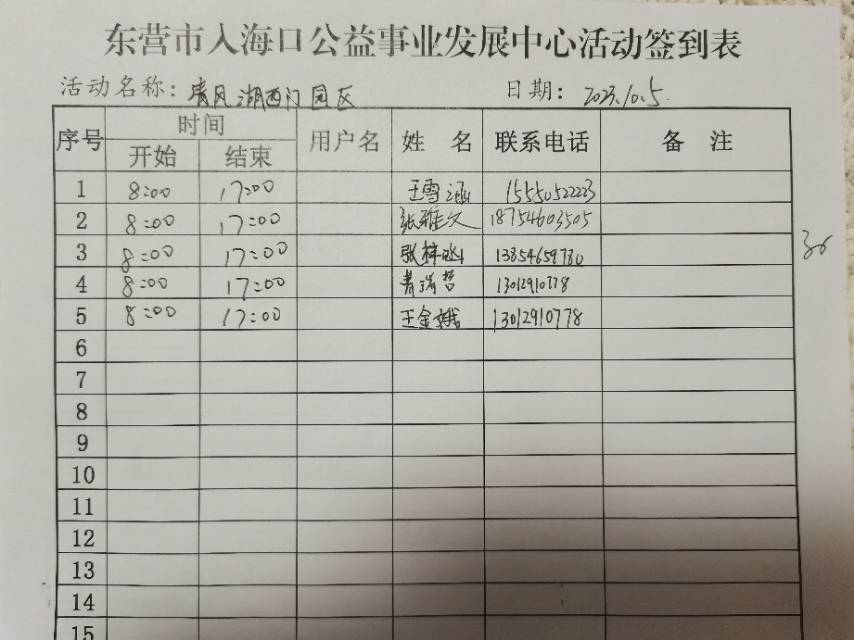 东营市入海口公益事业发展中心活动签到表
活动名称：清风湖西门园区 日期：2023.10.5.
序号 时间 用户名 姓名 联系电话 备注
开始 结束
1 8:00 17:00 王雪涵 15550522223
2 8:00 17:00 张雅文 18754603505
3 8:00 17:00 张梓 13854659780
4 8:00 17:00 瑞哲 13012910778
5 8:00 17:00 王金娥 13012910778
6
7
8
9
10
11
12
13
14
15